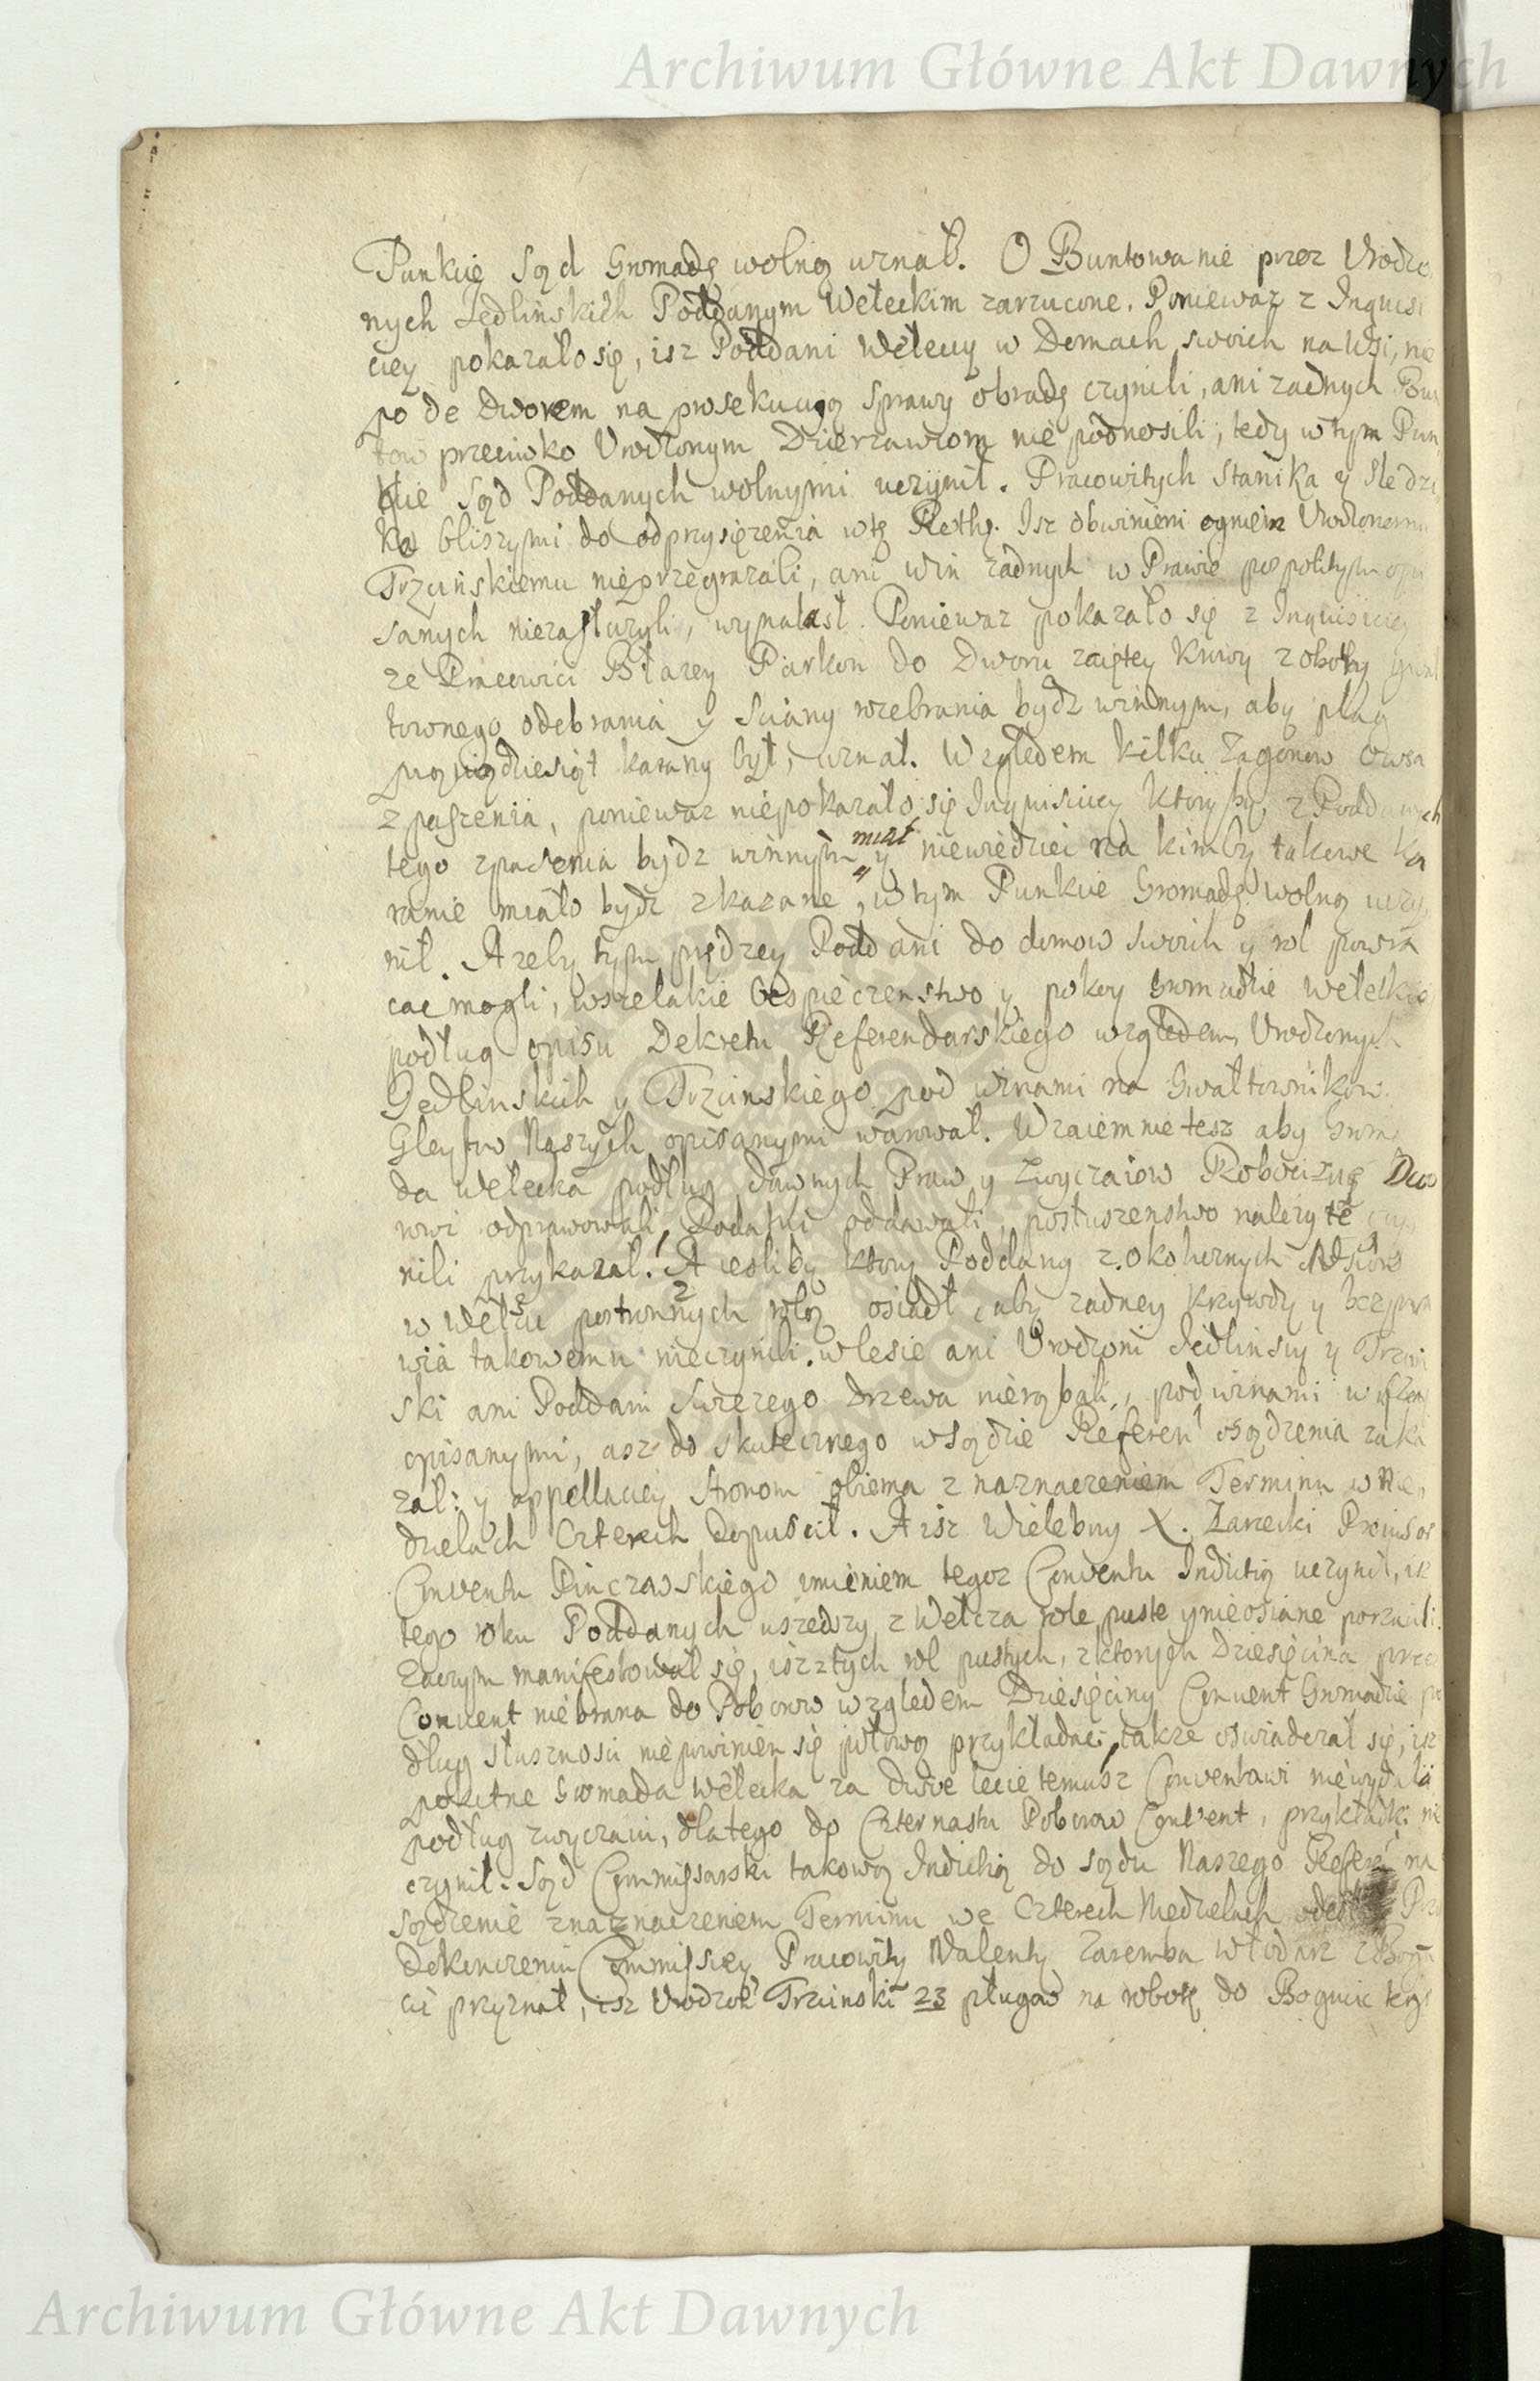 Archiwum Główne Akt Dawnych
Punkcie Sąd Gromadę wolną uznał. O Buntowanie przez Urodzo
nych Jedlińskich Poddanym Wełeckim zarzucone. Poniewaz z Inquisi
ciey pokazało się, isz Poddani Wełeccy w Domach swoich na Wsi, nie
po de Dworem na prosekucyą Sprawy obradę czynili, ani zadnych Bun
tow przeciwko Urodzonym Dzierzawcom nie podnosili, tedy w tym Pun
kcie Sąd Poddanych wolnymi uczynił. Pracowitych Stanika y Sledzi
ka bliszymi do odprzysięzenia w tę Rothę. Isz obwinieni ogniem Urodzonemu
Trzcińskiemu nieprzegrazali, ani win zadnych w Prawie pospolitym opi
sanych niezasłuzyli, wynalasł. Poniewaz pokazało się z Inquisiciey
ze Pracowici Błazey Piarkon do Dworu zaiętey Krowy z oboty gwał
townego odebrania y Sciany rozebrania bydz winnym, aby plag
pięcdziesiąt karany był, uznał. Względem kilku Zagonow Owsa
zpaszenia, poniewaz niepokazało się Inquisiciey ktoryby z Poddanych
tego zpasenia bydz winnym miał y niewiedziec na kimby takowe ka
ranie miało bydz zkazane, w tym Punkcie Gromadę wolną uczy
nił. A zeby tym prędzey Poddani do domow swoich y rol powra
cac mogli, wszelakie bespieczenstwo y pokoy Gromadzie Wełeckiey
podług opisu Dekretu Referendarskiego względem Urodzonych
Jedlinskich y Trzcinskiego pod winami na Gwałtownikow
Gleytow Naszych opisanymi warował. Wzaiemnie tesz aby Groma
da Wełecka podług dawnych Praw y zwyczaiow Robociznę Dwo
rowi odprawowali, Podatki oddawali, posłuszenstwo nalezyte czy
nili przykazał. A iesliby ktory Poddany z okolicznych Wsiow
w Wełczu postronnych rolą osiadł, aby zadney Krzywdy y bezpra
wia takowemu nieczynili. w lesie ani Urodzoni Jedlinscy y Trzcin
ski ani Poddani Swiezego drzewa nierąbali, pod winami w
opisanymi, asz do skutecznego w Sądzie Referen osądzenia zaka
zał: y appellaciey stronom obiema z naznaczeniem Terminu w Nie
dzielach Czterech Dopuscił. A isz Wielebny X. Zarzecki Prowisor
Conventu Pinczowskiego imieniem tegoz Conventu Inductią uczynił, isz
tego roku Poddanych uszedszy z Wełcza role puste y nieosiane porzucili
Zaczym manifestował się, isz z tych rol pustych, z ktorych Dziesięcina przez
Convent niebrana do Poborow względem Dziesięciny Convent Gromadzie po
dług słusznosci niepowinien się połową przykładac; takze oswiadczał się, isz
pokutne Gromada Wełecka za dwie lecie temusz Conventowi niewydała
podług zwyczaiu, dlatego do Czternastu Poborow Convent, przykładki nie
czynił. Sąd Commissarski takową Inductią do Sądu Naszego Referen na
sądzenie znaznaczeniem Terminu we Czterech Niedzielach odesłał Po
Dokonczeniu Commissiey Pracowity Walenty Zaremba Włodarz z Bogu
cic przyznał, isz Urodzony Trzcinski 23 pługow na robotę do Bogucic tego
Archiwum Główne Akt Dawnych